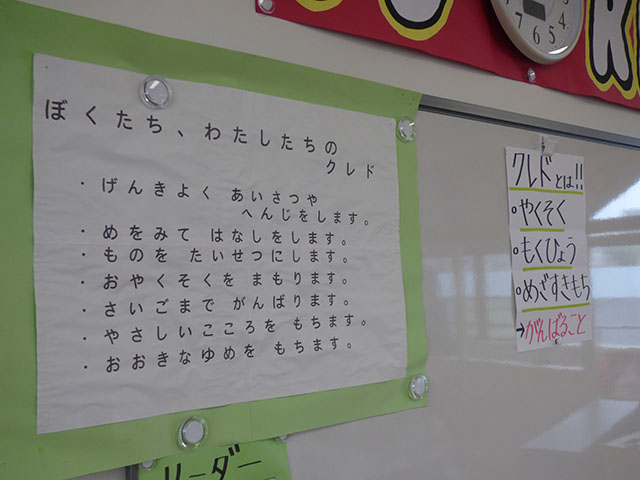 ぼくたち、わたしたちの
クレド
・げんきよく あいさつや
へんじをします。
・めをみて はなしをします。
・ものを たいせつにします。
・おやくそくを まもります。
・さいごまで がんばります。
・やさしいこころを もちます。
・おおきなゆめを もちます。
クレドとは!!
○やくそく
○もくひょう
○めざすきもち
→がんばること
リーダー